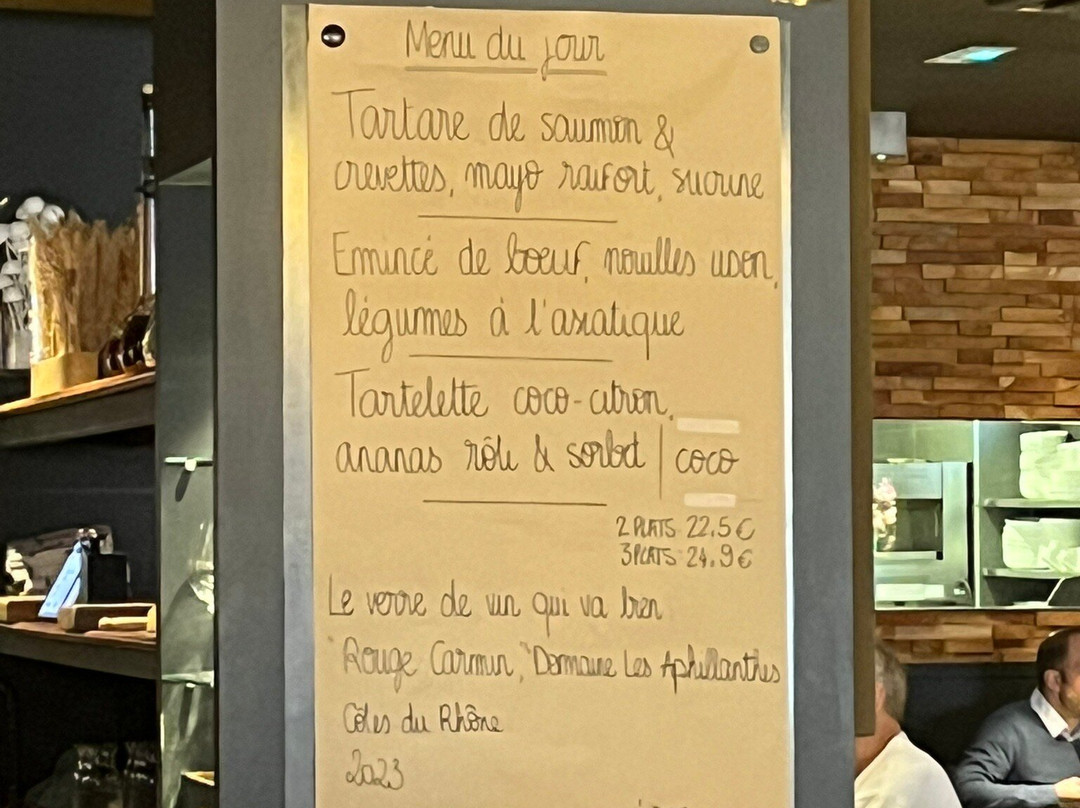 Menu du jour
Tartare de saumon &
crevettes, mayo raifort, sucrine
Emincé de boeuf, nouilles udon,
légumes à l'asiatique
Tartelette coco-citron,
ananas rôti & sorbet | coco
2 PLATS : 22,5€
3 PLATS : 24.9€
Le verre de vin qui va bien
"Rouge Carmin," Domaine Les Aphillanthes
Côtes du Rhône
2023